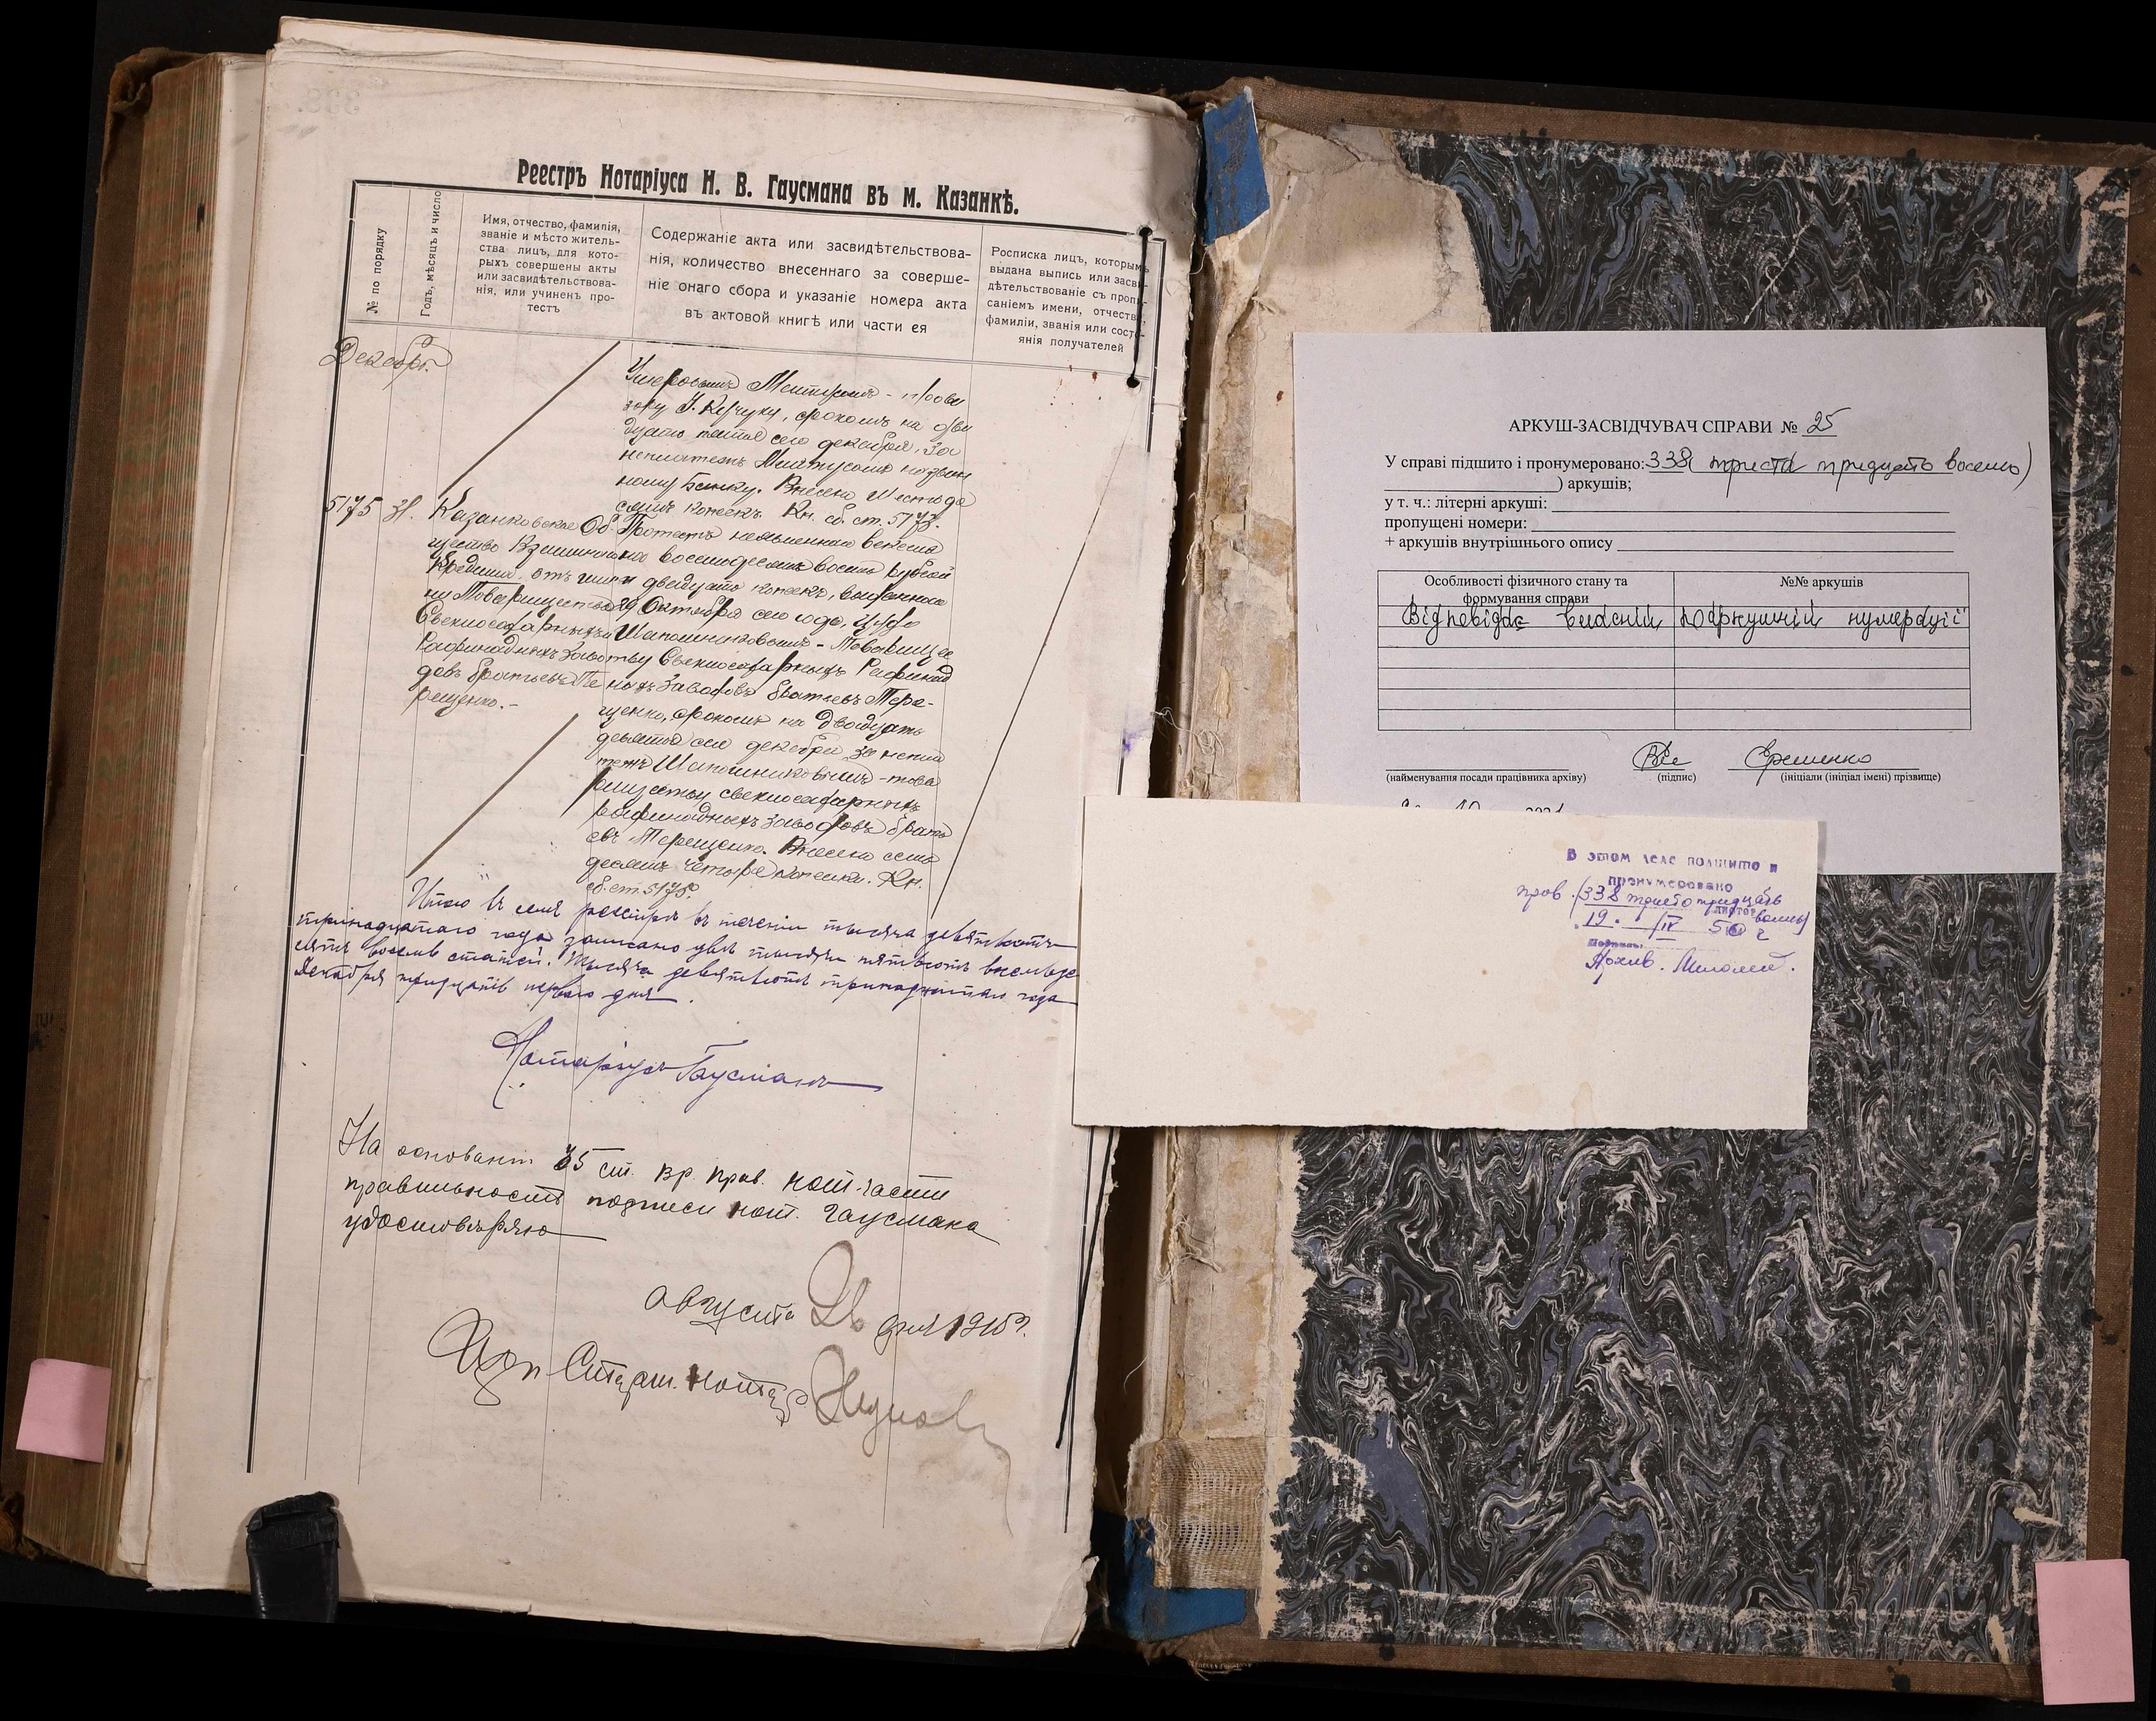 Реестръ Нотаріуса Н. В. Гаусмана въ м. Казанкѣ.
№ по порядку
Годъ, мѣсяцъ и число
Имя, отчество, фамилія,
званіе и мѣсто житель-
ства лицъ, для кото-
рыхъ совершены акты
или засвидѣтельствова-
нія, или учиненъ про-
тестъ
Содержаніе акта или засвидѣтельствова-
нія, количество внесеннаго за соверше-
ніе онаго сбора и указаніе номера акта
въ актовой книгѣ или части ея
Росписка лицъ, которымъ
выдана выпись или засви-
дѣтельствованіе съ пропи-
саніемъ имени, отчества,
фамиліи, званія или состо-
янія получателей
Декабрь.
срокомъ на два
дцать пятое сего декабря, за
неплатежъ
ному Банку. Внесено Шестьде
сятъ копеекъ. Кн. сб. ст. 5173.
5175 31.
Казанковское Об-
щество Взаимнаго
Кредита, отъ име
ни Товарищества
Свеклосахарныхъ
Рафинадныхъ Заво
довъ братьевъ Те
рещенко.-
Протестъ векселя
на восемьдесятъ восемь рублей
двадцать копеекъ, выданнаго
29 Октября сего года,
Шапошниковымъ - Товарище
ству Свеклосахарныхъ Рафинад
ныхъ Заводовъ братьевъ Тере-
щенко, срокомъ на двадцать
девятое сего декабря, за непла
тежъ Шапошниковымъ - това
риществу свеклосахарныхъ
рафинадныхъ заводовъ брать
евъ Терещенко. Внесено семь
десятъ четыре копейки. Кн.
сб. ст. 5175.
Итого въ семъ реестрѣ въ теченіи тысяча девятьсотъ
тринадцатаго года записано двѣ тысячи пятьсотъ восемьде
сятъ восемь статей. Тысяча девятьсотъ тринадцатаго года
Декабря тридцать перваго дня.
Нотаріусъ Гаусманъ
На основаніи 35 ст. вр. прав. нот. части
правильность подписи нот. Гаусмана
удостовѣряю
августа 26 дня 1915 г.
Старш. Нотар
АРКУШ-ЗАСВІДЧУВАЧ СПРАВИ № 25
У справі підшито і пронумеровано: 338 ( триста тридцять восемь)
) аркушів;
у т. ч.: літерні аркуші:
пропущені номери:
+ аркушів внутрішнього опису
Особливості фізичного стану та
формування справи
№№ аркушів
Відповідає власній поаркушній нумерації
(найменування посади працівника архіву)
(підпис)
Єременко
(ініціали (ініціал імені) прізвище)
В этом деле подшито и
пронумеровано
пров. (338 триста тридцать
листов восемь)
19. /IV 50 г
Подпись:
Архив.